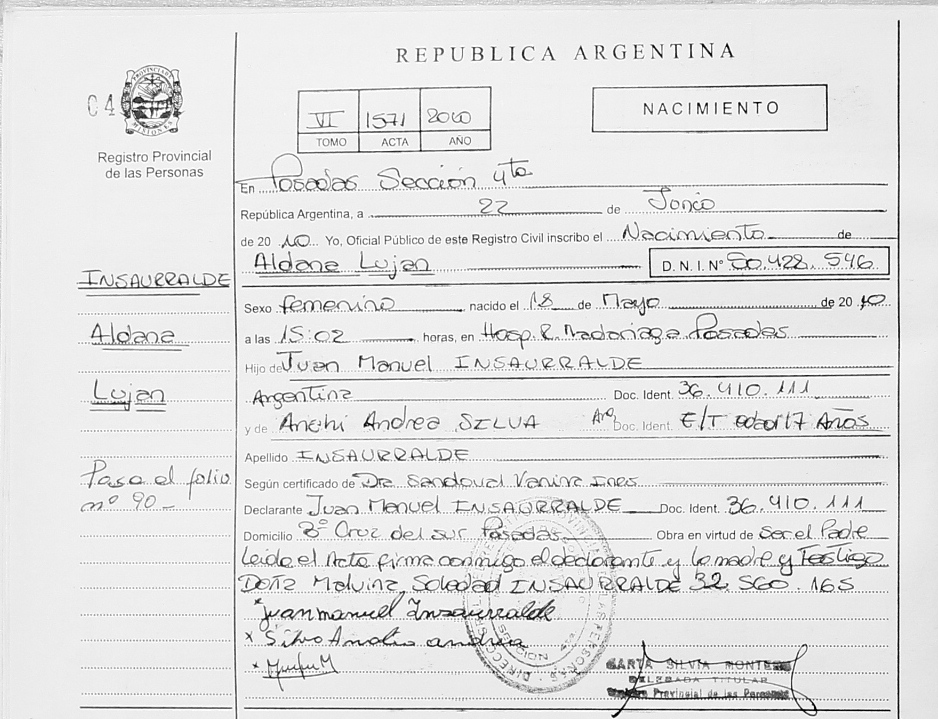 REPUBLICA ARGENTINA
04
PROVINCIA DE MISIONES
VI 1571 2010
TOMO ACTA AÑO
NACIMIENTO
Registro Provincial
de las Personas
En Posadas Sección 4ta
República Argentina, a 22 de Junio
de 2010 Yo, Oficial Público de este Registro Civil inscribo el Nacimiento de
Aldana Lujan D.N.I.Nº 50.428.546
INSAURRALDE
Aldana
Lujan
Sexo femenino nacido el 18 de Mayo de 2010
a las 15:02 horas, en Hosp. R. Madariaga Posadas
Hijo de Juan Manuel INSAURRALDE
Argentina Doc. Ident. 36.410.111
y de Andrea SILVA Arg. Doc. Ident. E/T edad 17 Años
Apellido INSAURRALDE
Pasa al folio
nº 90-
Según certificado de Dra Sandoval Vanina Ines
Declarante Juan Manuel INSAURRALDE Doc. Ident. 36.410.111
Domicilio Bº Cruz del sur Posadas Obra en virtud de Ser el Padre
Leida el Acta firma conmigo el declarante y la madre y Testigo
Doña Malvina Soledad INSAURRALDE 32.560.165
Juan manuel Insaurralde
x Silva andrea
SILVIA MONTERO
DELEGADA TITULAR
Provincial de las Personas